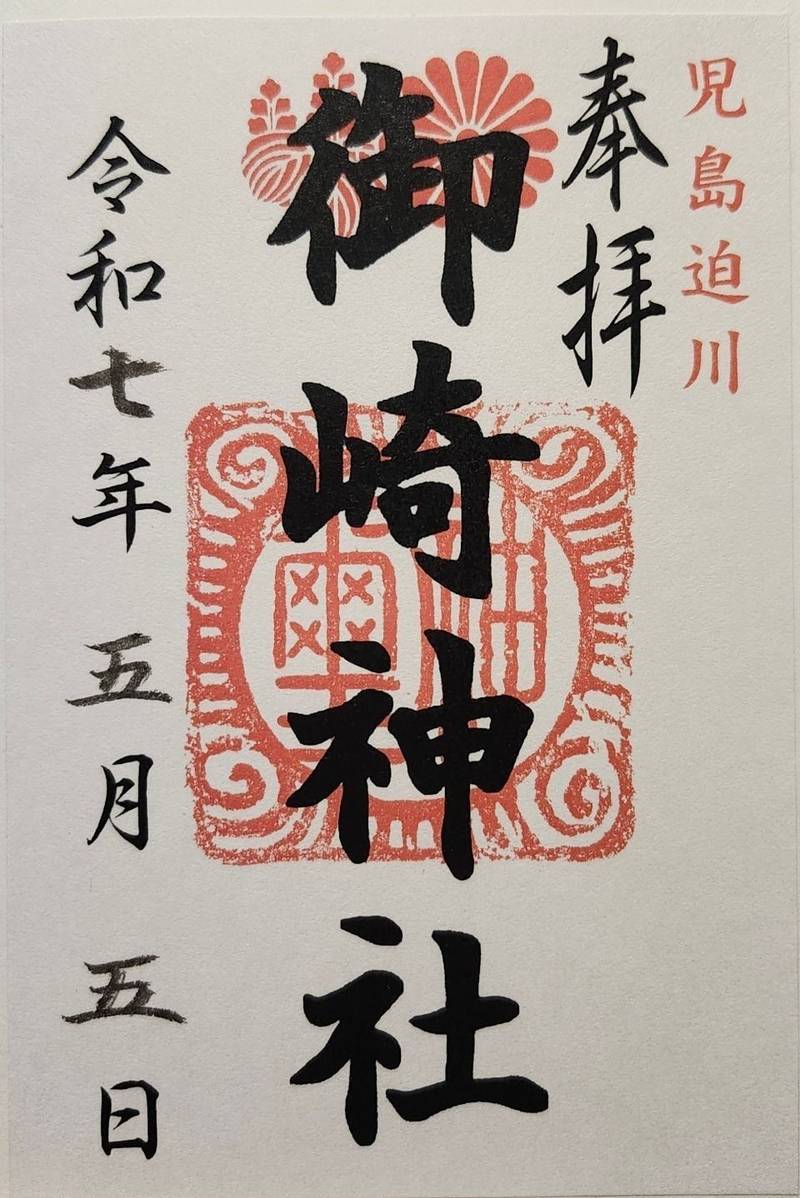 児島迫川
奉拝
御崎神社
令和七年 五月 五日